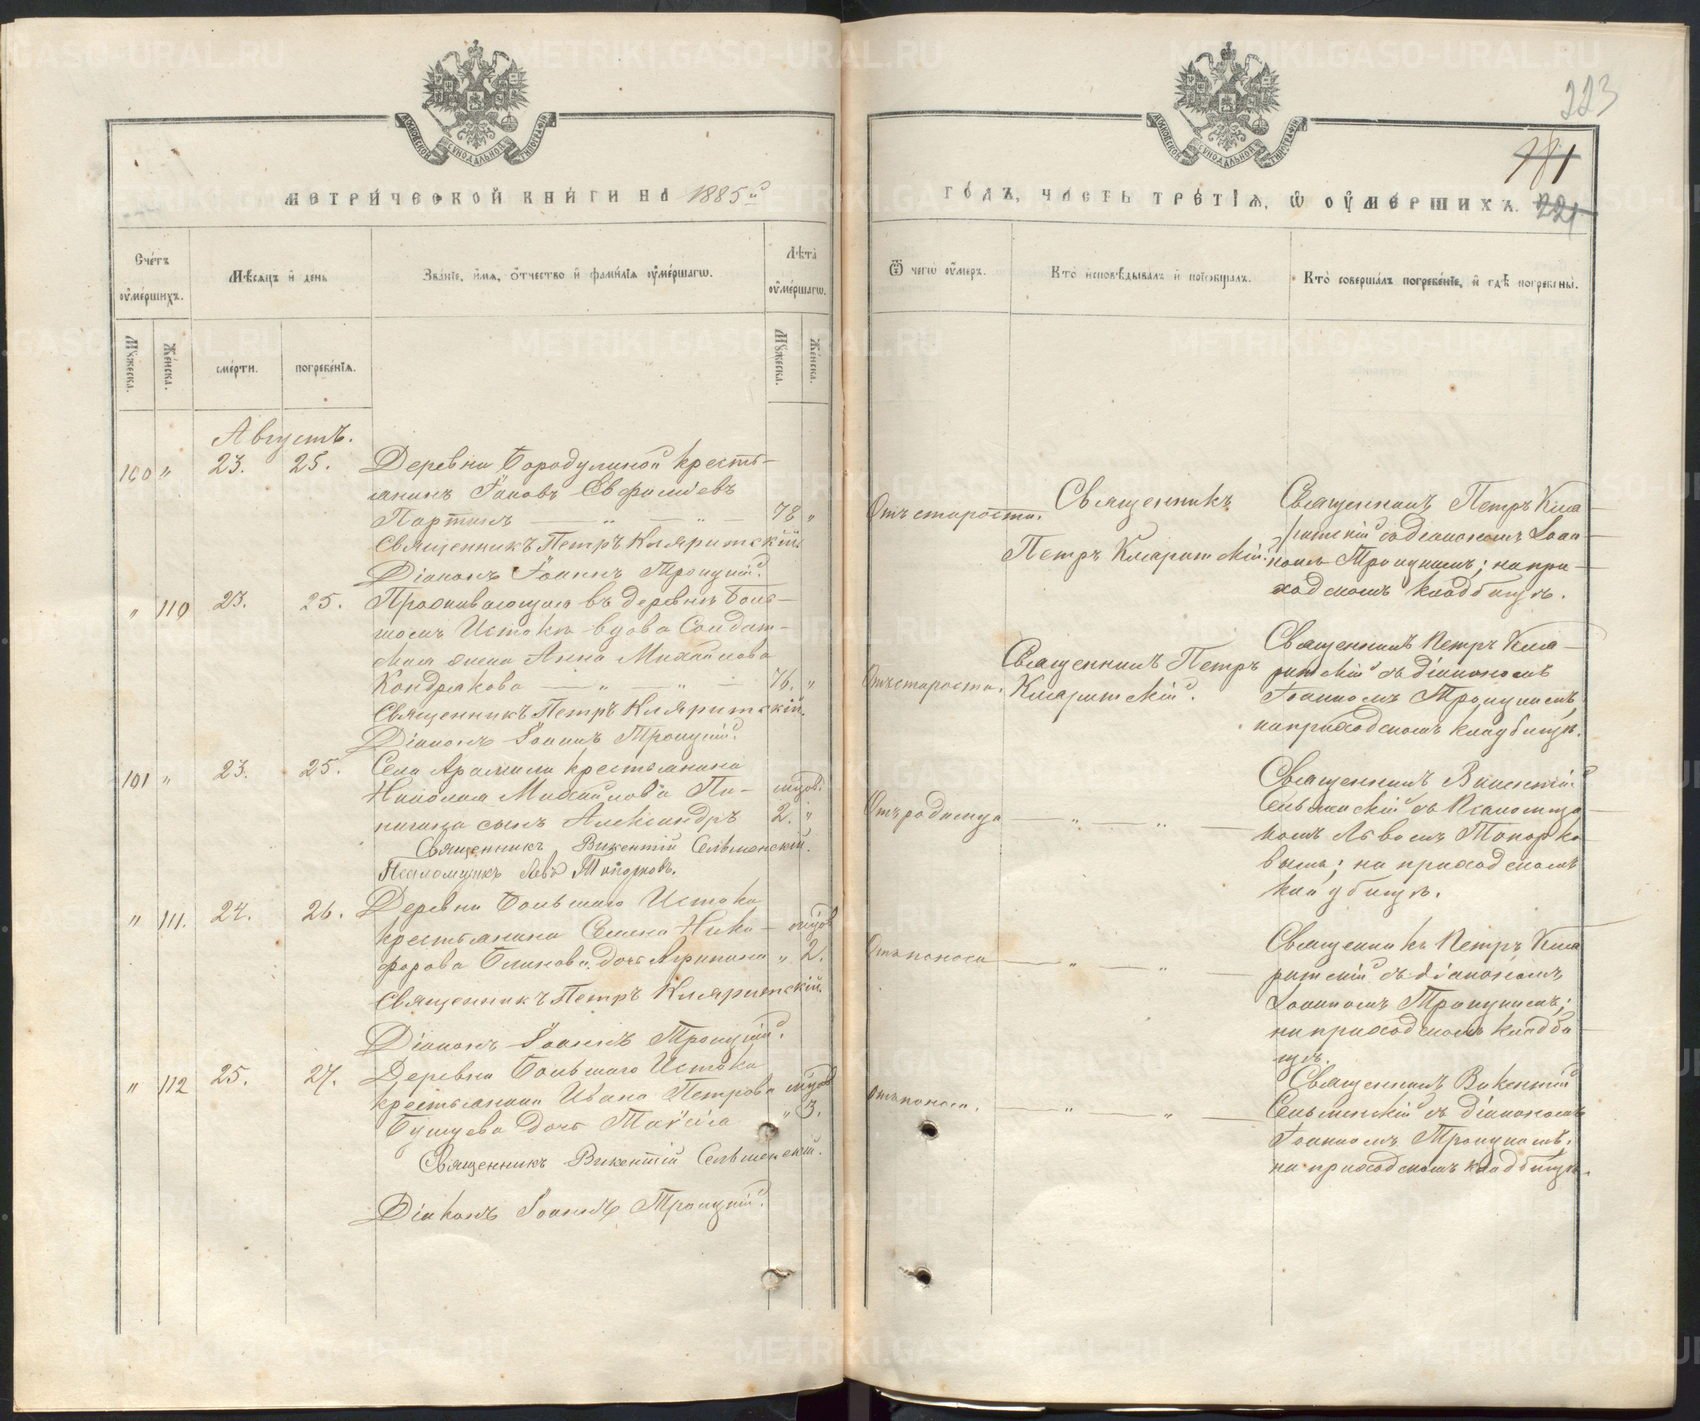 223
181
221
МОСКОВСКОЙ СѴНОДАЛЬНОЙ ТИПОГРАФІИ
МОСКОВСКОЙ СѴНОДАЛЬНОЙ ТИПОГРАФІИ
МЕТРИ́ЧЕСКОЙ КНИ́ГИ НА 1885й
ГО́ДЪ, ЧАСТЬ ТРЕ́ТІѦ, Ѽ ОУ҆МЕ́РШИХЪ.
Сче́тъ оу҆ме́ршихъ.
Мѣ́сяцъ и҆ день
Зва́ніе, и҆́мя, ѻ҆́тчество и҆ фами́лія оу҆ме́ршагѡ.
Лѣта̀ оу҆ме́ршагѡ.
Ѿ чегѡ̀ оу҆́меръ.
Кто̀ и҆сповѣ́дывалъ и҆ прїѡбща́лъ.
Кто̀ соверша́лъ погребе́ніе, и҆ гдѣ̀ погребены̀.
Му́жеска. Же́нска. сме́рти. погребе́нія. Му́жеска. Же́нска.
Августъ.
100 " 23. 25. Деревни Бородулиной кресть-
янинъ Іаковъ Евфиміевъ
Партинъ — " — " — 78 "
Священникъ Петръ Кляритскій
Діаконъ Іоаннъ Троицкій.
Отъ старости.
Священникъ
Петръ Кляритскій.
Священникъ Петръ Кля-
ритскій съ діакономъ Іоан-
номъ Троицкимъ; на при-
ходскомъ кладбищѣ.
" 110 23. 25. Проживающая въ деревнѣ Боль-
шомъ Истокѣ вдова Солдат-
ская жена Анна Михайлова
Кондракова — " — " — 76. "
Священникъ Петръ Кляритскій.
Діаконъ Іоаннъ Троицкій.
Отъ старости.
Священникъ Петръ
Кляритскій.
Священникъ Петръ Кля-
ритскій съ діакономъ
Іоанномъ Троицкимъ,
на приходскомъ кладбищѣ.
101 " 23. 25. Села Арамили крестьянина
Николая Михайлова Пи- мѣсяц.
сынъ Александръ 2. "
Священникъ Викентій Сельменскій.
Псаломщикъ Левъ Топорковъ.
Отъ родимца — " — " —
Священникъ Викентій
Сельменскій съ Псаломщи-
комъ Львомъ Топорко-
вымъ; на приходскомъ
кладбищѣ.
" 111. 24. 26. Деревни Большаго Истока
крестьянина Семена Ники-
форова дочь Агрипина " 2.
Священникъ Петръ Кляритскій.
Діаконъ Іоаннъ Троицкій.
Отъ поноса — " — " —
Священникъ Петръ Кля-
ритскій съ діакономъ
Іоанномъ Троицкимъ;
на приходскомъ кладби-
щѣ.
" 112 25. 27. Деревни Большаго Истока
крестьянина Ивана Петрова
дочь Таисія " 3.
Священникъ Викентій Сельменскій.
Діаконъ Іоаннъ Троицкій.
Отъ поноса. — " — " —
Священникъ Викентій
Сельменскій съ діакономъ
Іоанномъ Троицкимъ,
на приходскомъ кладбищѣ.
METRIKI.GASO-URAL.RU